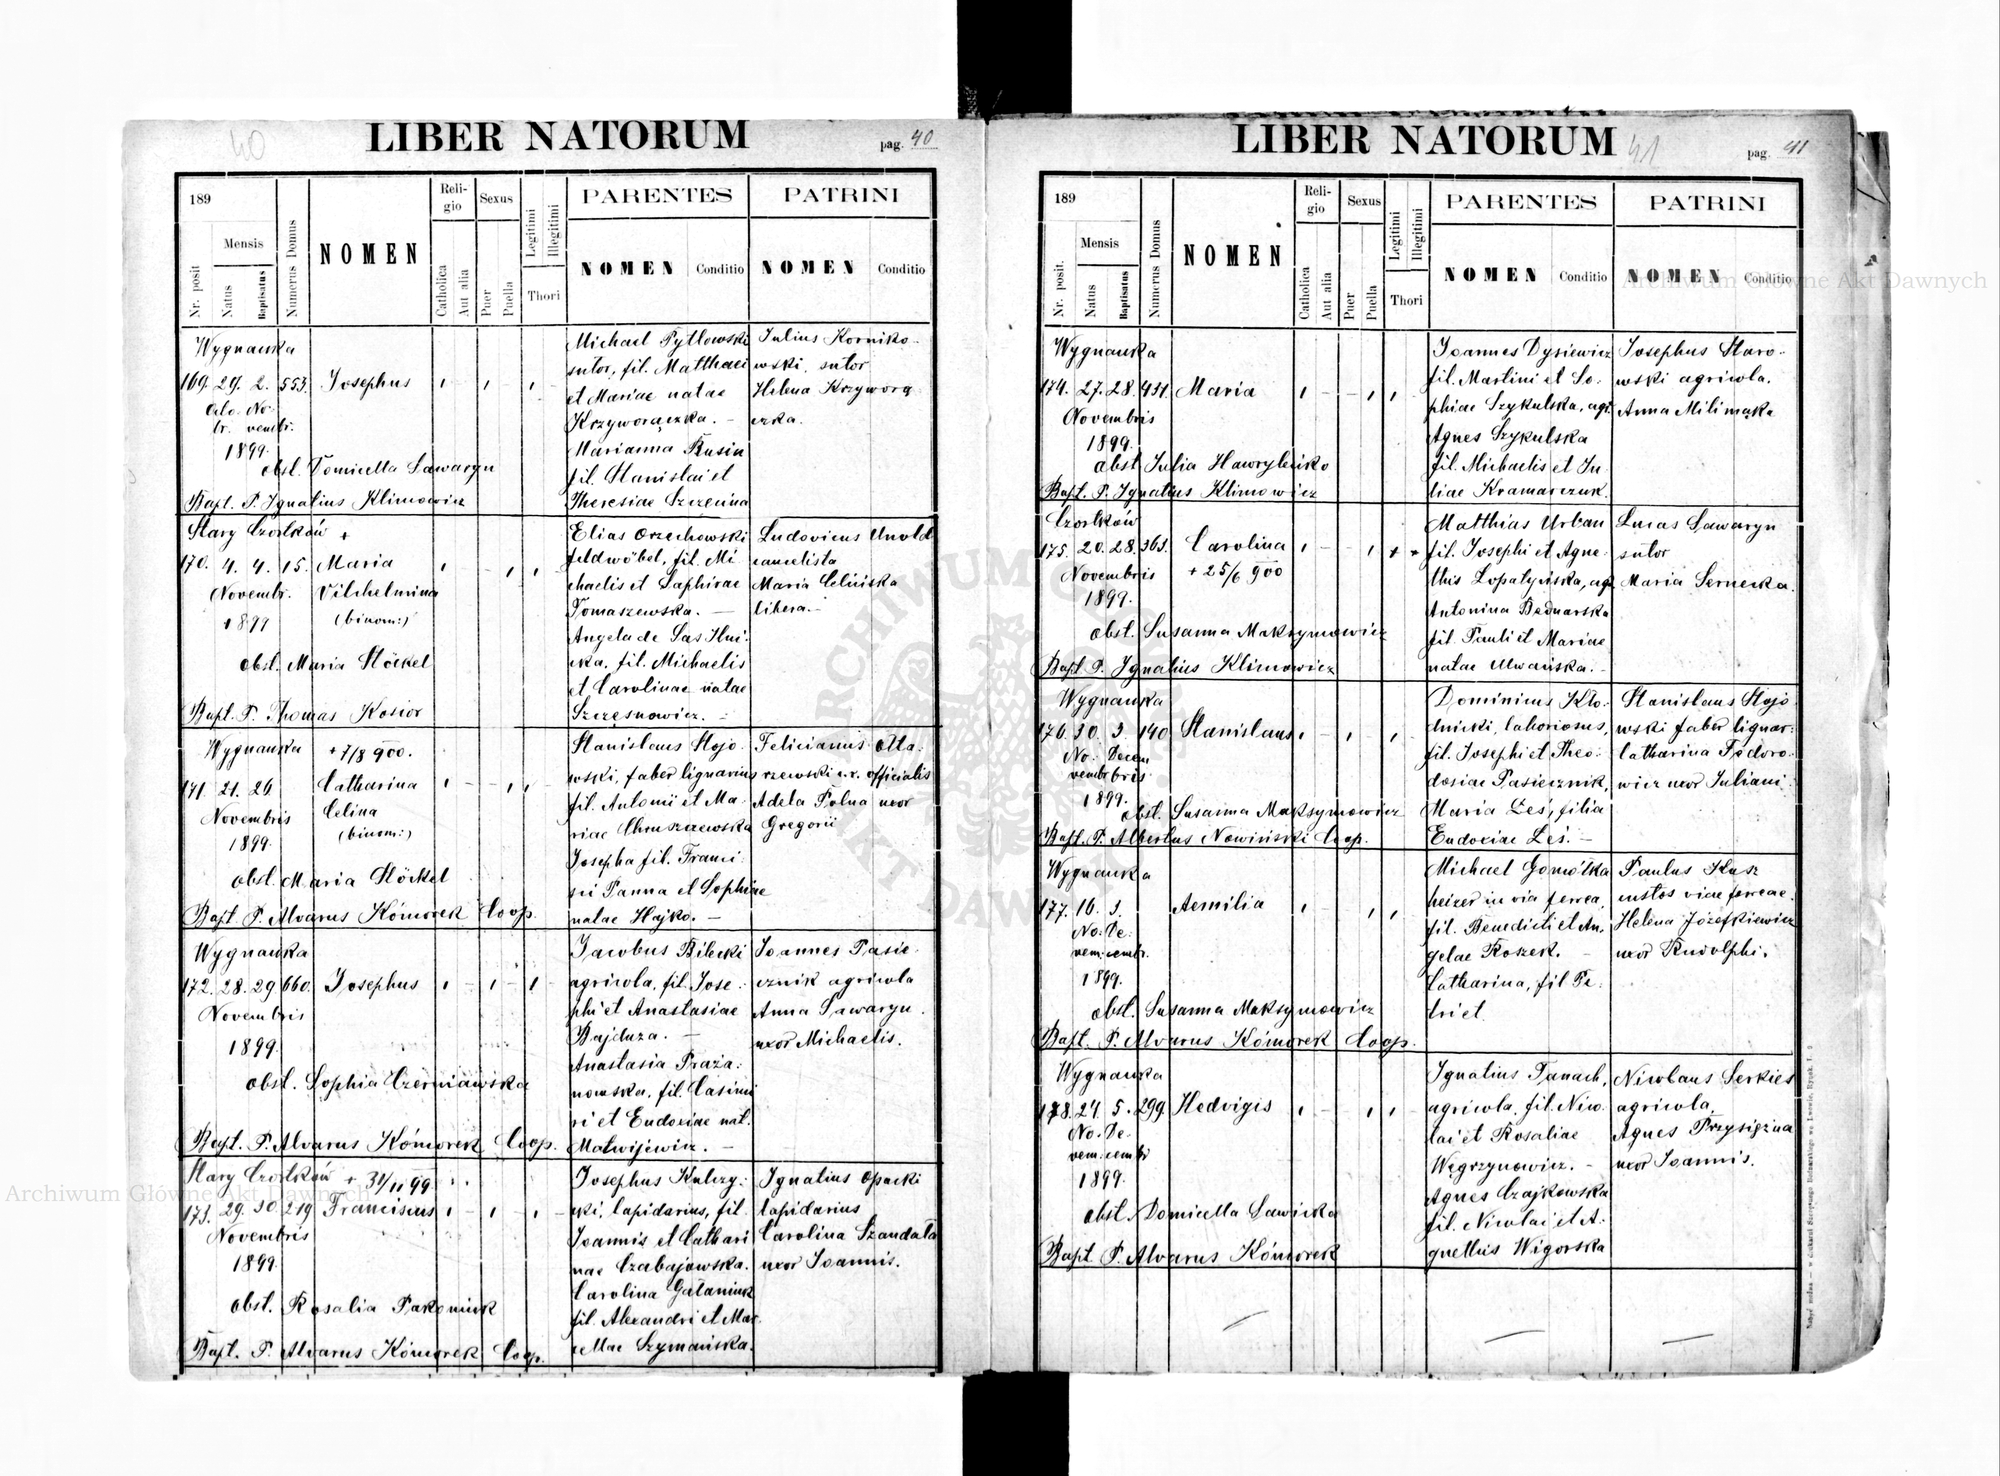 40
LIBER NATORUM
pag. 40
189
Mensis
Nr. posit
Natus
Baptisatus
Numerus Domus
NOMEN
Reli-
gio
Catholica
Aut alia
Sexus
Puer
Puella
Legitimi
Illegitimi
Thori
PARENTES
NOMEN
Conditio
PATRINI
NOMEN
Conditio
Wygnanka
169. 29. 2. 553. Josephus
Octo. No-
br. vembr.
1899.
obst. Domicella Sawaryn
Bapt. P. Ignatius Klimowicz
Michael Pytlowski
sutor, fil. Matthaei
et Mariae natae
Krzyworączka. –
Marianna Busin
fil. Stanislai et
Theresiae Szczerina
Julius Korniko-
wski, sutor
Helena Krzyworą
czka.
Stary Czortków +
170. 4. 4. 15. Maria
Novembr. Vilchelmina
1899 (binom:)
obst. Maria Stöckel
Bapt. P. Thomas Kosior
Elias Orzechowski
feldwöbel, fil. Mi
chaelis et Saphirae
Tomaszewska. –
Angela de Sas Hni-
cka, fil. Michaelis
et Carolinae natae
Szczęsnowicz. –
Ludovicus Unold
cancelista
Maria Celińska
libera.–
Wygnanka + 7/8 900.
171. 21. 26 Catharina
Novembris Celina
1899. (binom:)
obst. Maria Stöckel
Bapt. P. Alvarus Kómorek Coop.
Stanislaus Stojo-
wski, faber lignarius
fil. Antonii et Ma-
riae Chruszczewska
Josepha fil. Franci-
sci Panna et Sophiae
natae Hajko. –
Felicianus Ota-
rzewski c.r. officialis
Adela Polna uxor
Gregorii
Wygnanka
172. 28. 29. 660. Josephus
Novembris
1899.
obst. Sophia Czerniawska
Bapt. P. Alvarus Kómorek Coop.
Jacobus Bilecki
agricola, fil. Jose-
phi et Anastasiae
Bajduza. –
Anastasia Praża-
nowska, fil. Casimi
ri et Eudoxiae nat.
Matwijewicz. –
Joannes Pasie-
cznik agricola
Anna Sawaryn
uxor Michaelis.
Stary Czortków + 31/11 99.
173. 29. 30. 219 Franciscus
Novembris
1899.
obst. Rosalia Pakoniuk
Bapt. P. Alvarus Kómorek Coop.
Josephus Kulczy-
cki, lapidarius, fil.
Joannis et Cathari
nae Czabajowska.
Carolina Gataniuk
fil. Alexandri et Mar-
cellae Szymańska.
Ignatius Opacki
lapidarius
Carolina Szandała
uxor Joannis.
LIBER NATORUM
41
pag. 41
189
Mensis
Nr. posit.
Natus
Baptisatus
Numerus Domus
NOMEN
Reli-
gio
Catholica
Aut alia
Sexus
Puer
Puella
Legitimi
Illegitimi
Thori
PARENTES
NOMEN
Conditio
PATRINI
NOMEN
Conditio
Wygnanka
174. 27. 28. 431. Maria
Novembris
1899.
obst. Julia Hawryleńko
Bapt. P. Ignatius Klimowicz
Joannes Dysiewicz
fil. Martini et So-
phiae Szykulska, agr.
Agnes Szykulska
fil. Michaelis et Ju-
liae Kramarczuk.
Josephus Staro-
wski agricola.
Anna Milimąka
Czortków
175. 20. 28. 363. Carolina
Novembris + 25/6 900
1899.
obst. Susanna Maksymowicz
Bapt. P. Ignatius Klimowicz
Matthias Urban
fil. Josephi et Agne-
this Lopatyńska, agr.
Antonina Bednarska
fil. Pauli et Mariae
natae Ulwańska. –
Lucas Sawaryn
sutor
Maria Sernecka.
Wygnanka
176. 30. 3. 140 Stanislaus
No- Decem
vembr bris
1899.
obst. Susanna Maksymowicz
Bapt. P. Albertus Nowiński Coop.
Dominicus Kło-
dnicki, laboriosus,
fil. Josephi et Theo-
dosiae Pasiecznik,
Maria Leś, filia
Eudoxiae Leś. –
Stanislaus Stojo
wski faber lignar:
Catharina Fedoro-
wicz uxor Juliani.
Wygnanka
177. 16. 3. Aemilia
No- De-
vem- cembr.
1899.
obst. Susanna Maksymowicz
Bapt. P. Alvarus Kómorek Coop.
Michael Gomółka
heizer in via ferrea,
fil. Benedicti et An-
gelae Roszek. –
Catharina, fil Pe-
tri et
Paulus Kusz
custos viae ferreae.
Helena Józefkiewicz
uxor Rudolphi.
Wygnanka
178. 24. 5. 299. Hedvigis
No- De-
vem- cembr
1899.
obst. Domicella Sawicka
Bapt. P. Alvarus Kómorek
Ignatius Panach,
agricola, fil. Nico-
lai et Rosaliae
Węgrzynowicz. –
Agnes Czajkowska
fil. Nicolai et A-
gnethis Wigorska
Nicolaus Serkies
agricola,
Agnes Przysiężna
uxor Joannis.
Archiwum Główne Akt Dawnych
Archiwum Główne Akt Dawnych
ARCHIWUM GŁÓWNE AKT DAWNYCH